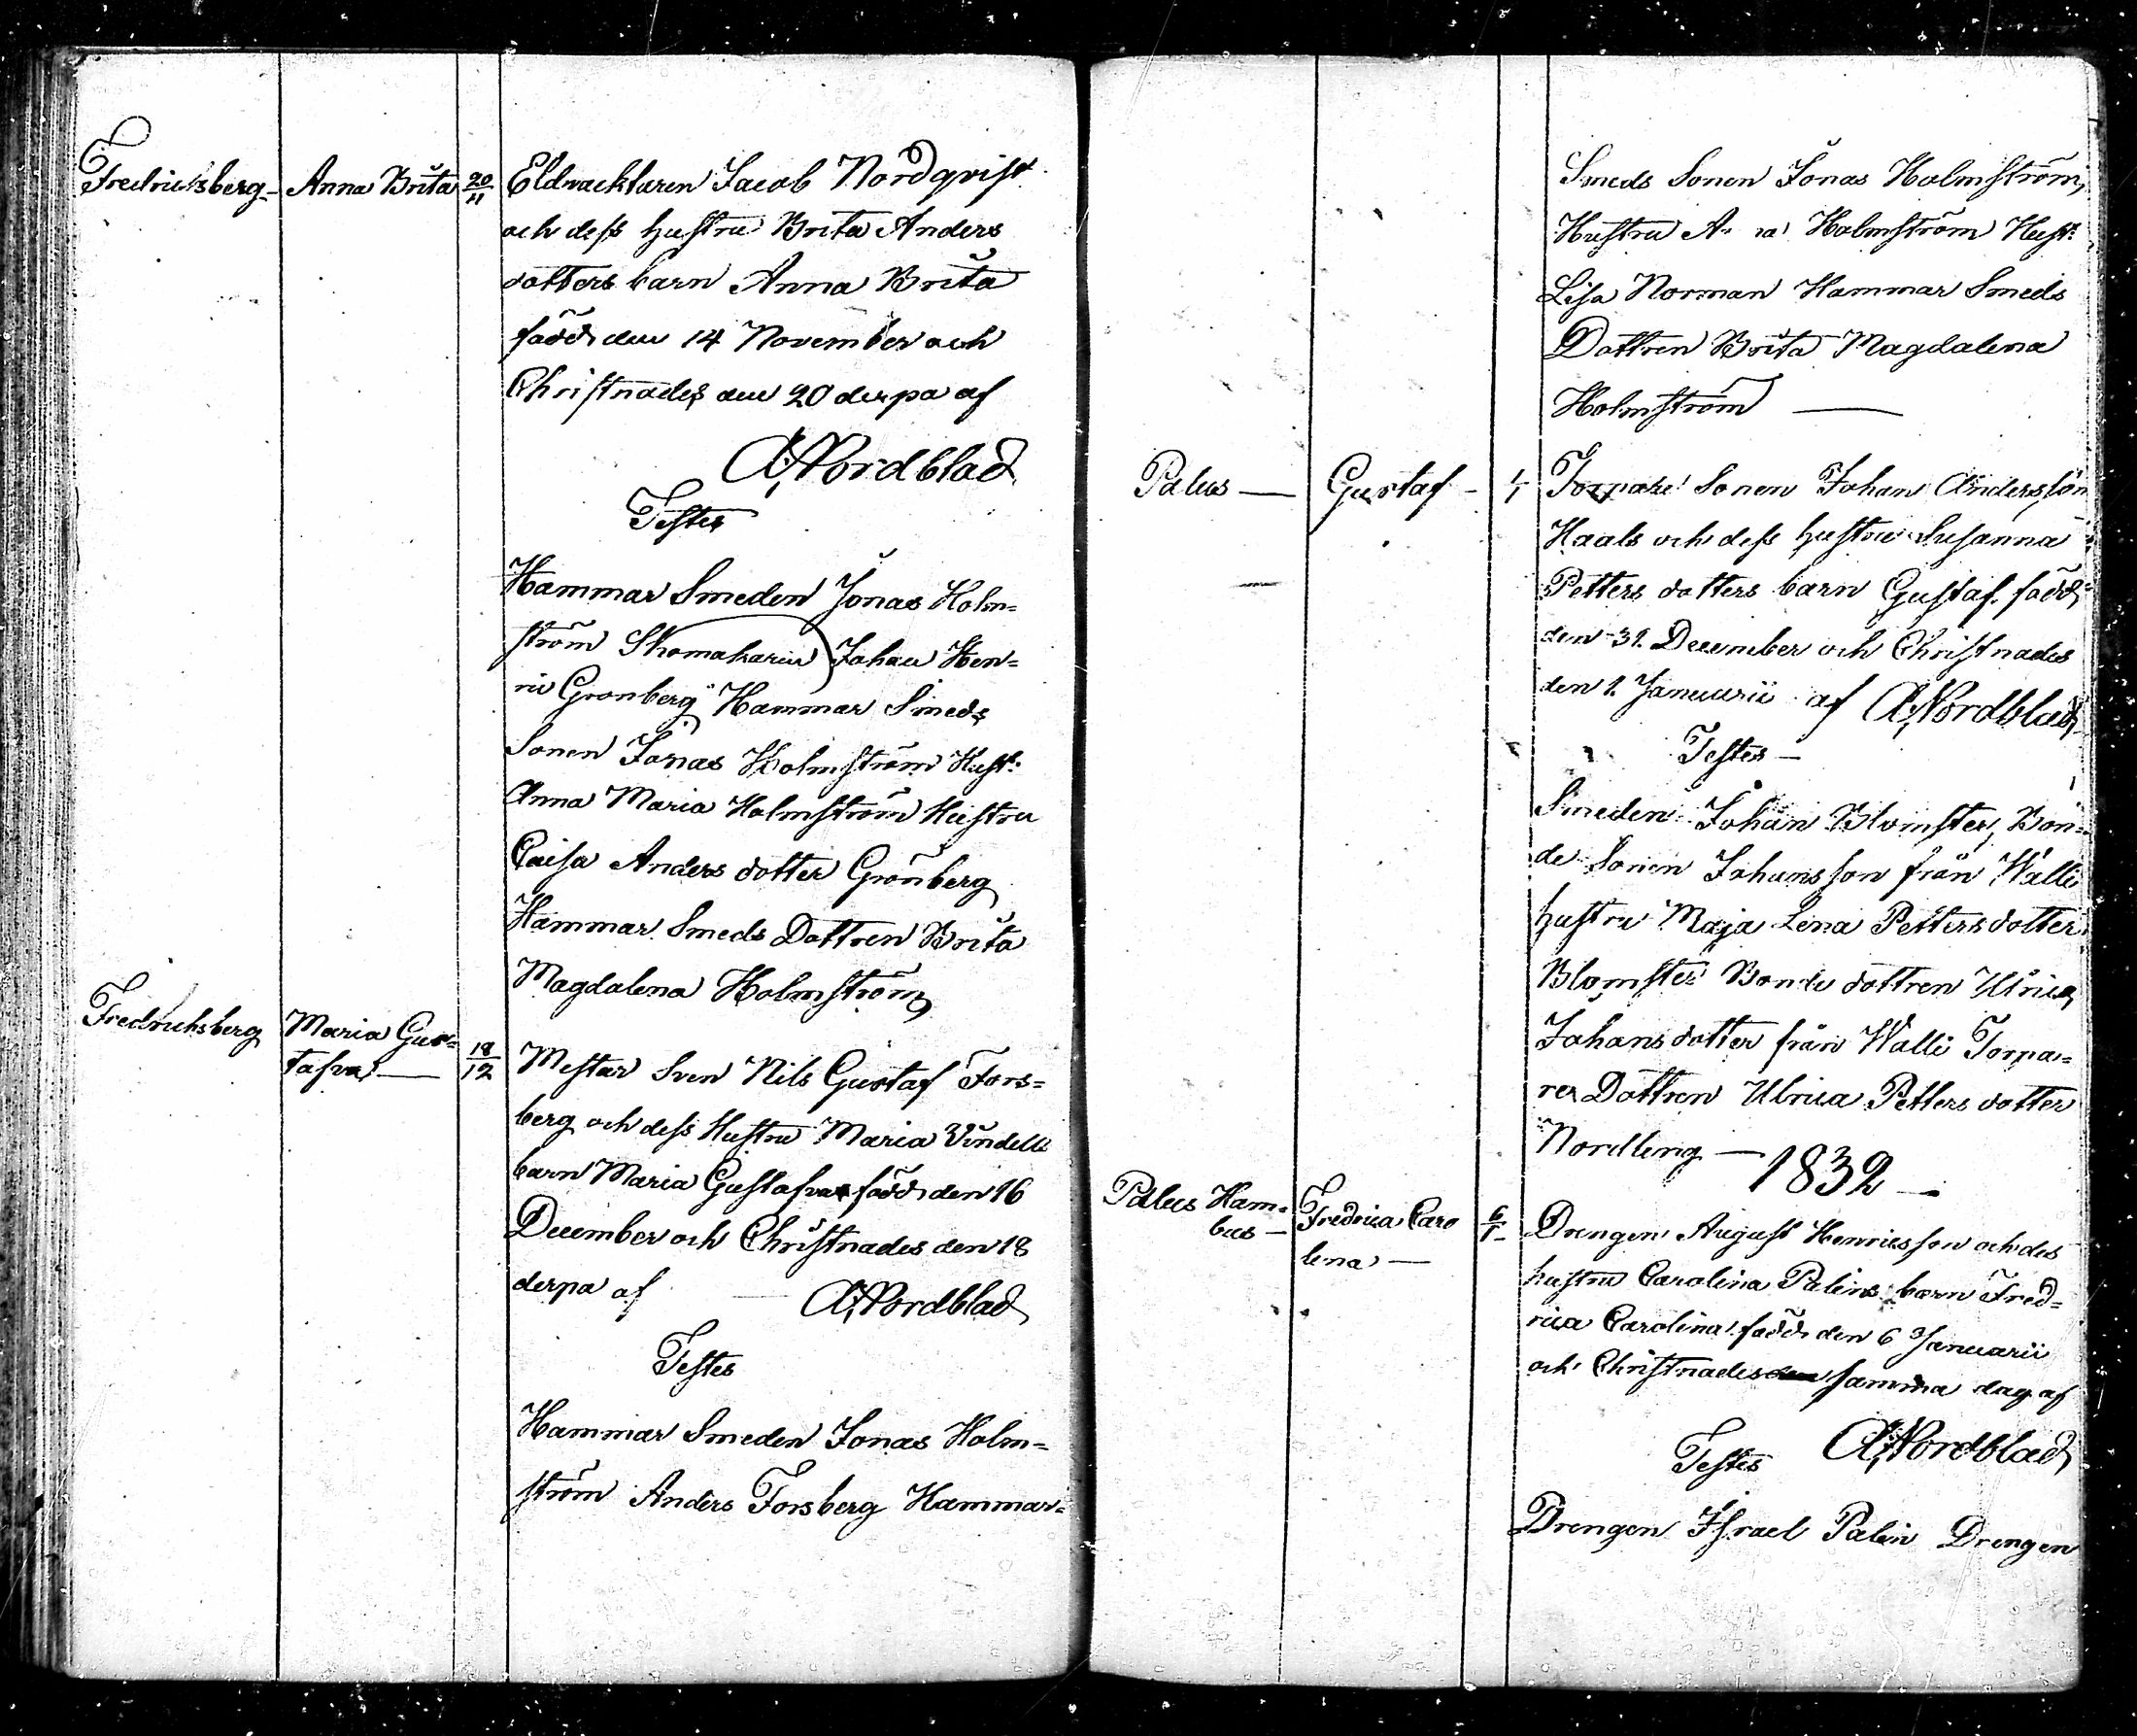 Fredricksberg- Anna Brita 20/11 Eldvacktaren Jacob Nordqvist
och dess hustru Brita Anders
dotters barn Anna Brita
född den 14 November och
Christnades den 20 derpa af
A. Nordblad
Testes
Hammar Smeden Jonas Holm=
ström Skomakaren Johan Hen=
ric Grönberg Hammar Smeds
Sonen Jonas Holmström Hust:
Anna Maria Holmström Hustru
Caisa Anders dotter Grönberg
Hammar Smeds Dottren Brita
Magdalena Holmström
Fredricksberg Maria Gus=
tafva — 18/12 Mestar Sven Nils Gustaf Fors=
berg och dess Hustru Maria
barn Maria Gustafva född den 16
December och Christnades den 18
derpa af — A. Nordblad
Testes
Hammar Smeden Jonas Holm=
ström Anders Forsberg Hammar=
Smeds Sonen Jonas Holmström,
Hustru Holmström Hust:
Lisa Norman Hammar Smeds
Dottren Brita Magdalena
Holmström —
Palus — Gustaf - 1/1 Sonen Johan Andersson
Haals och dess hustru Susanna
Petters dotters barn Gustaf född
den 31. December och Christnades
den 1. Januarii af A. Nordblad
Testes —
Smeden Johan Blomster, Bon=
de Sonen Johansson från Walli
hustru Maja Lena Petters dotter
Blomster Bonde dottren Ulrica
Johans dotter från Walli Torpa=
rer Dottren Ulrica Petters dotter
Nordling — 1832 —
Palus Ham=
bus — Fredrica Caro
lena — 6/1 Drengen August Henricsson och des
hustru Carolina Palins barn Fred=
rica Carolina född den 6 Januarii
och Christnades samma dag af
Testes A. Nordblad
Drengen Israel Palin Drengen